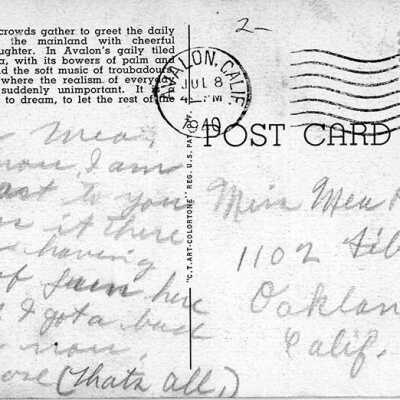 crowds gather to greet the daily
the mainland with cheerful
ughter. In Avalon's gaily tiled
a, with its bowers of palm and
nd the soft music of troubadou
where the realism of everyday
suddenly unimportant. It is
to dream, to let the rest of the
2-
AVALON, CALIF.
JUL 8
4 PM
1940
POST CARD
"C.T. ART-COLORTONE" REG. U.S. PAT.
Mea,
now, I am
to you
it there
having
of fun here
I got a bad
now,
(thats all,)
Miss Mea
1102
Oaklan
Calif.